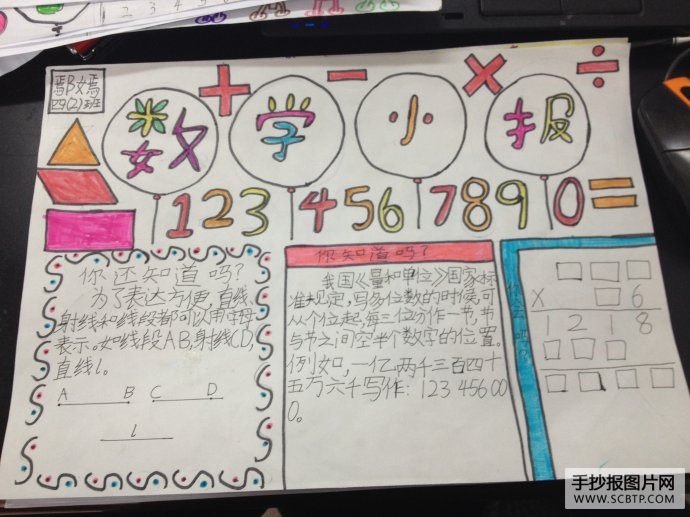 鄢文嫣
四(2)班
+ − × ÷
数学小报
1234567890=
你还知道吗?
为了表达方便,直线、
射线和线段都可以用字母
表示。如线段AB,射线CD,
直线l。
A B C D
l
你知道吗?
我国《量和单位》国家标
准规定,写多位数的时候,可
从个位起,每三位分作一节,节
与节之间空半个数字的位置。
例如,一亿两千三百四十
五万六千写作:123 456 00
0。
□□□
× □6
1 2 1 8
□□□
□□□□
手抄报图片网
WWW.SCBTP.COM